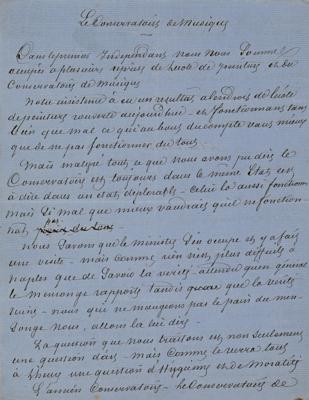 Le Conservatoire de Musique
Dans le premier Indépendant nous nous sommes
occupés à plusieurs reprises de l'école de peinture et du
Conservatoire de Musique
Notre insistance a eu un résultat à l'endroit de l'école
de peinture rouverte aujourd'hui et fonctionnant tant
bien que mal ce qui au bout du compte vaut mieux
que de ne pas fonctionner du tout.
Mais malgré tout ce que nous avons pu dire le
Conservatoire est toujours dans le même état c'est
à dire dans un état déplorable - celui là aussi fonctionne
mais si mal que mieux vaudrait qu'il ne fonction-
nât pas
Nous savons que le ministre s'en occupe et y a fait
une visite - mais comme rien n'est plus difficile à
Naples que de savoir la vérité - attendu qu'en général
le mensonge rapporte tandis que la vérité
ruine - nous que ne mangeons pas le pain du men-
songe nous allons la lui dire
La question que nous traitons est non seulement
une question d'art - mais comme le verra tout
à l'heure une question d'hygiène et de moralité
L'ancien Conservatoire - le Conservatoire de